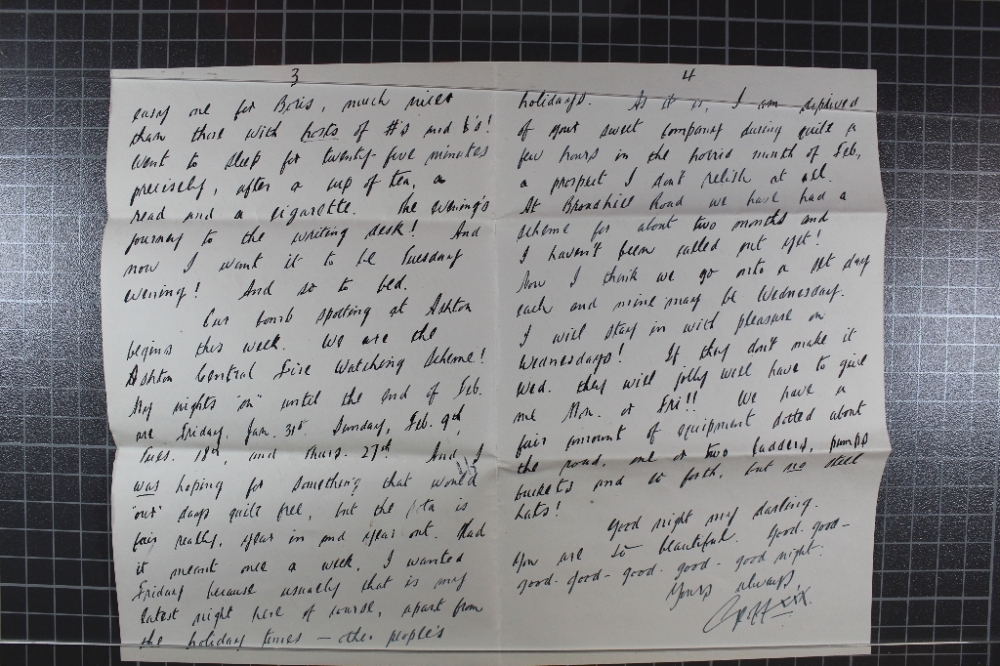 3
easy one for Boris, much nicer
than those with hosts of #'s and b's!
Went to sleep for twenty-five minutes
precisely, after a cup of tea, a
read and a cigarette. The evening's
journey to the writing desk! And
now I want it to be Tuesday
evening! And so to bed.
Our bomb spotting at Ashton
begins this week. We are the
Ashton Central Fire Watching Scheme!
My nights "on" until the end of Feb.
are Friday, Jan. 31st. Sunday, Feb. 9th,
Tues. 18th, and Thurs. 27th. And I
was hoping for something that would
"our" days quite free, but the is
fair really, year in and year out. Had
it meant once a week, I wanted
Friday because usually that is my
latest night here of course, apart from
the holiday times — other people's
4
holidays. As it is, I am deprived
of your sweet company during quite a
few hours in the horrid month of Feb,
a prospect I don't relish at all.
At Broadhill Road we have had a
scheme for about two months and
I haven't been called out yet!
Now I think we go onto a set day
each and mine may be Wednesday.
I will stay in with pleasure on
Wednesdays! If they don't make it
Wed. they will jolly well have to give
me Mon. or Fri!! We have a
fair amount of equipment dotted about
the road, one or two ladders, pumps
buckets and so forth, but no steel
hats!
Good night my darling.
You are so beautiful. Good-good-
good-good-good-good-good night.
Yours always,
Geoff xxx.